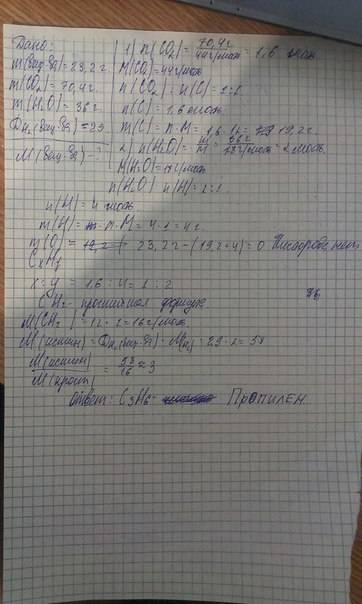 Дано:
m(вещ-ва)=23,2г.
m(CO2)=70,4г.
m(H2O)=36г
DH2(вещ-ва)=29
M(вещ-ва)-?
1) n(CO2)=70,4г/44г/моль=1,6 моль
M(CO2)=44г/моль
n(CO2):n(C)=1:1
n(C)=1,6моль
m(C)=n·M=1,6·12=19,2г.
2) n(H2O)=m/M=36г/18г/моль=2моль
M(H2O)=18г/моль
n(H2O) n(H)=1:2
n(H)=4 моль
m(H)=n·M=4·1=4г.
m(O)=23,2г-(19,2+4)=0 Кислорода нет
CxHy
x:y=1,6:4=1:2
CH2- простейшая формула
M(CH2)=12+2=16г/моль
M(истин)=DH2(вещ-ва)·M(H2)=29·2=58
M(истин)/M(прост)=58/16≈3
ответ: C3H6- Пропилен